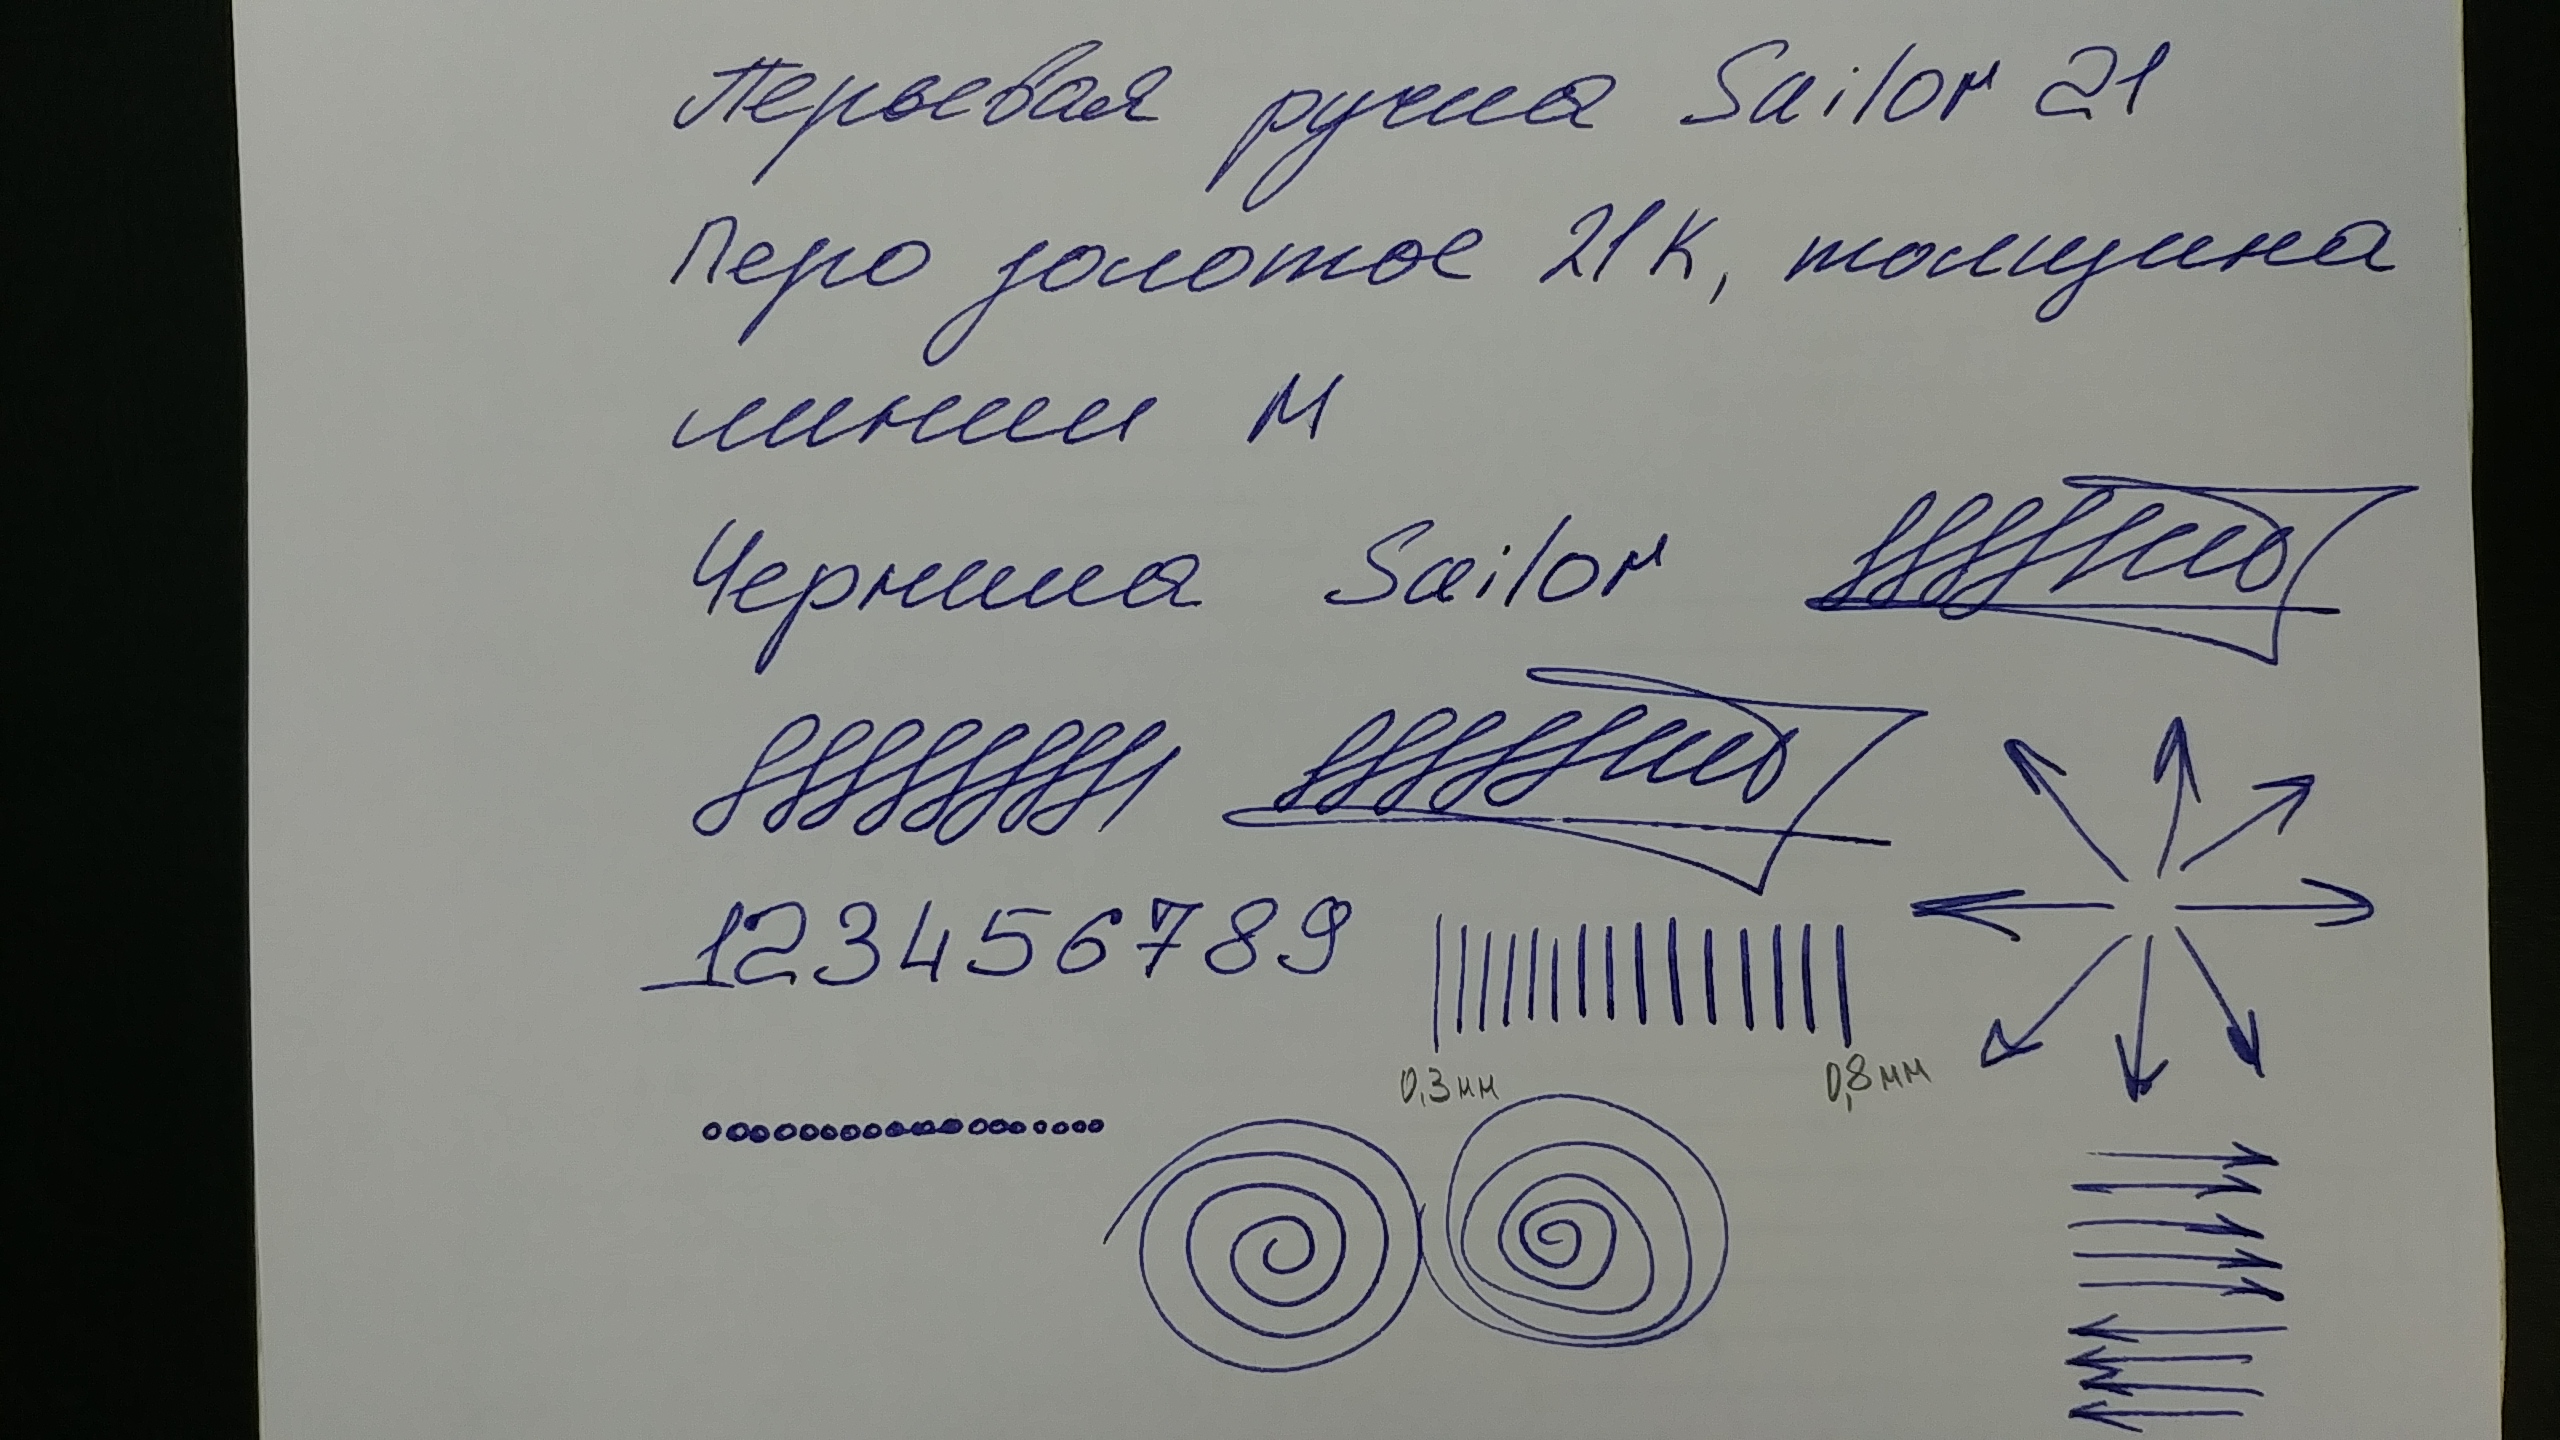 Перьевая ручка Sailor 21
Перо золотое 21К, толщина
линии М
Чернила Sailor
123456789
0,3мм 0,8мм